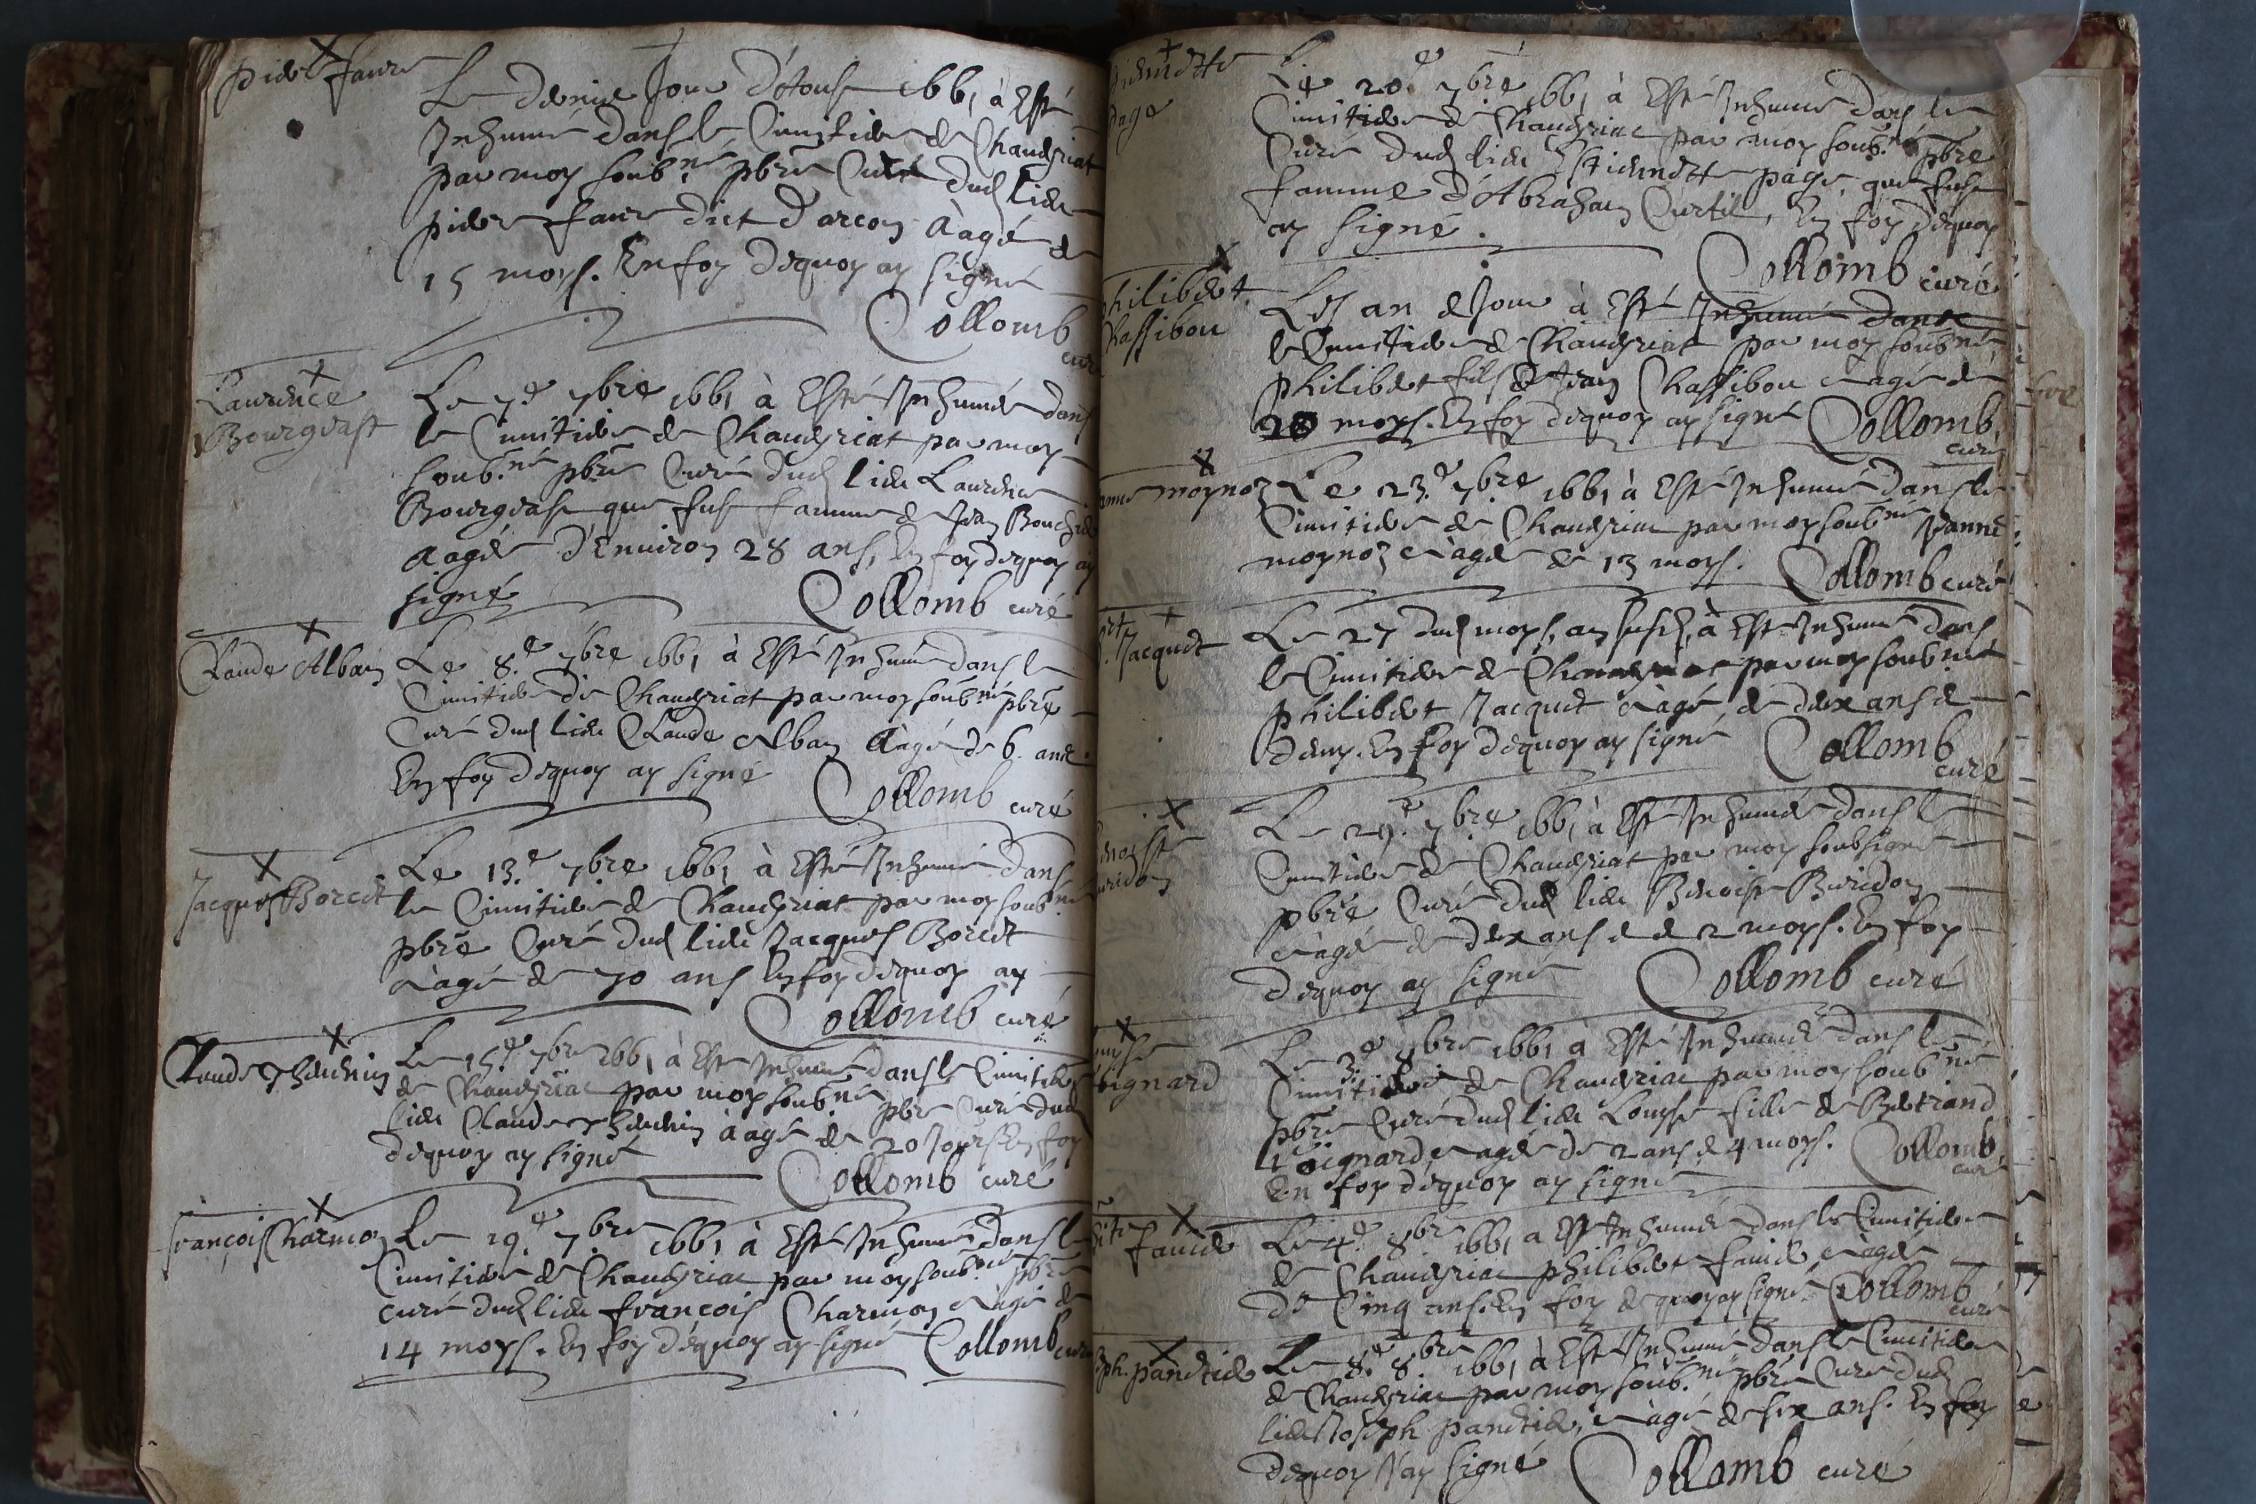 pierre faure
Le dernier Jour d'Aoust 1661 à Esté
Inhumé dans le Cimitiere de Chaveyriat
par moy soub.né pbre Curé dud lieu
pierre faure dict d'arcon àagé de
15 moys. En foy dequoy ay signé
Collomb
curé
Laurence
Bourgeast
Le 7e 7bre 1661 à Esté Inhumée dans
le Cimitiere de Chaveyriat par moy
soub.né pbre Curé dud lieu Laurence
Bourgeast que fust famme de Jean
aagée d'Environ 28 ans, En foy dequoy ay
signé
Collomb curé
Claude Alban
Le 8.e 7bre 1661 à Esté Inhumé dans le
Cimitiere de Chaveyriat par moy soub.né pbre
Curé dud lieu Claude Alban àagé de 6. ans.
En foy dequoy ay signé
Collomb curé
Jacques Borcet
Le 13.e 7bre 1661 à Esté Inhumé dans
le Cimitiere de Chaveyriat par moy soub.né
pbre Curé dud lieu Jacques Borcet
àagé de 70 ans En foy dequoy ay
Collomb curé
Claude Thevenin
Le 15.e 7bre 1661 à Esté Inhumé dans le Cimitiere
de Chaveyriat par moy soub.né pbre Curé dud
lieu Claude Thevenin àagé de 20 Jours En foy
dequoy ay signé
Collomb curé
françois Charmon
Le 19.e 7bre 1661 à Esté Inhumé dans le
Cimitiere de Chaveyriat par moy soub.né pbre
curé dud lieu françois Charmon àagé de
14 moys. En foy dequoy ay signé Collomb curé
page
Le 20.e 7bre 1661 à Esté Inhumée dans le
Cimitiere de Chaveyriat par moy soub.né pbre
Curé dud lieu Estiennette page, que fust
famme d'Abraham Curtil, En foy dequoy
ay signé.
Collomb curé
philibert
Chassibou
Les an et Jour à Esté Inhumé dans
le Cimitiere de Chaveyriat par moy soub.né
philibert fils de Jean Chassibou àagé de
20 moys. En foy dequoy ay signé Collomb
curé
moynoz
Le 23.e 7bre 1661 à Esté Inhumée dans le
Cimitiere de Chaveyriat par moy soub.né Jeanne
moynoz àagée de 13 moys. Collomb curé
Jacquet
Le 27 dud moys, an susd, à Esté Inhumé dans
le Cimitiere de Chaveyriat par moy soub.né
philibert Jacquet àagé de deux ans et
demy. En foy dequoy ay signé Collomb
curé
Le 29.e 7bre 1661 à Esté Inhumée dans le
Cimitiere de Chaveyriat par moy soubsigné
pbre Curé dud lieu Benoiste Buridon
àagée de deux ans et de 2 moys. En foy
dequoy ay signé Collomb curé
Le 3.e 8bre 1661 à Esté Inhumée dans le
Cimitiere de Chaveyriat par moy soub.né
pbre Curé dud lieu Louyse fille de Bertrand
àagée de 2 ans et 4 moys. Collomb
curé
En foy dequoy ay signé
favier
Le 4.e 8bre 1661 à Esté Inhumé dans le Cimitiere
de Chaveyriat philibert favier àagé
de Cinq ans. En foy dequoy ay signé. Collomb
curé
panetier
Le 8.e 8bre 1661 à Esté Inhumé dans le Cimitiere
de Chaveyriat par moy soub.né pbre Curé dud
lieu Joseph panetier, àagé de six ans. En foy
dequoy J'ay signé
Collomb curé